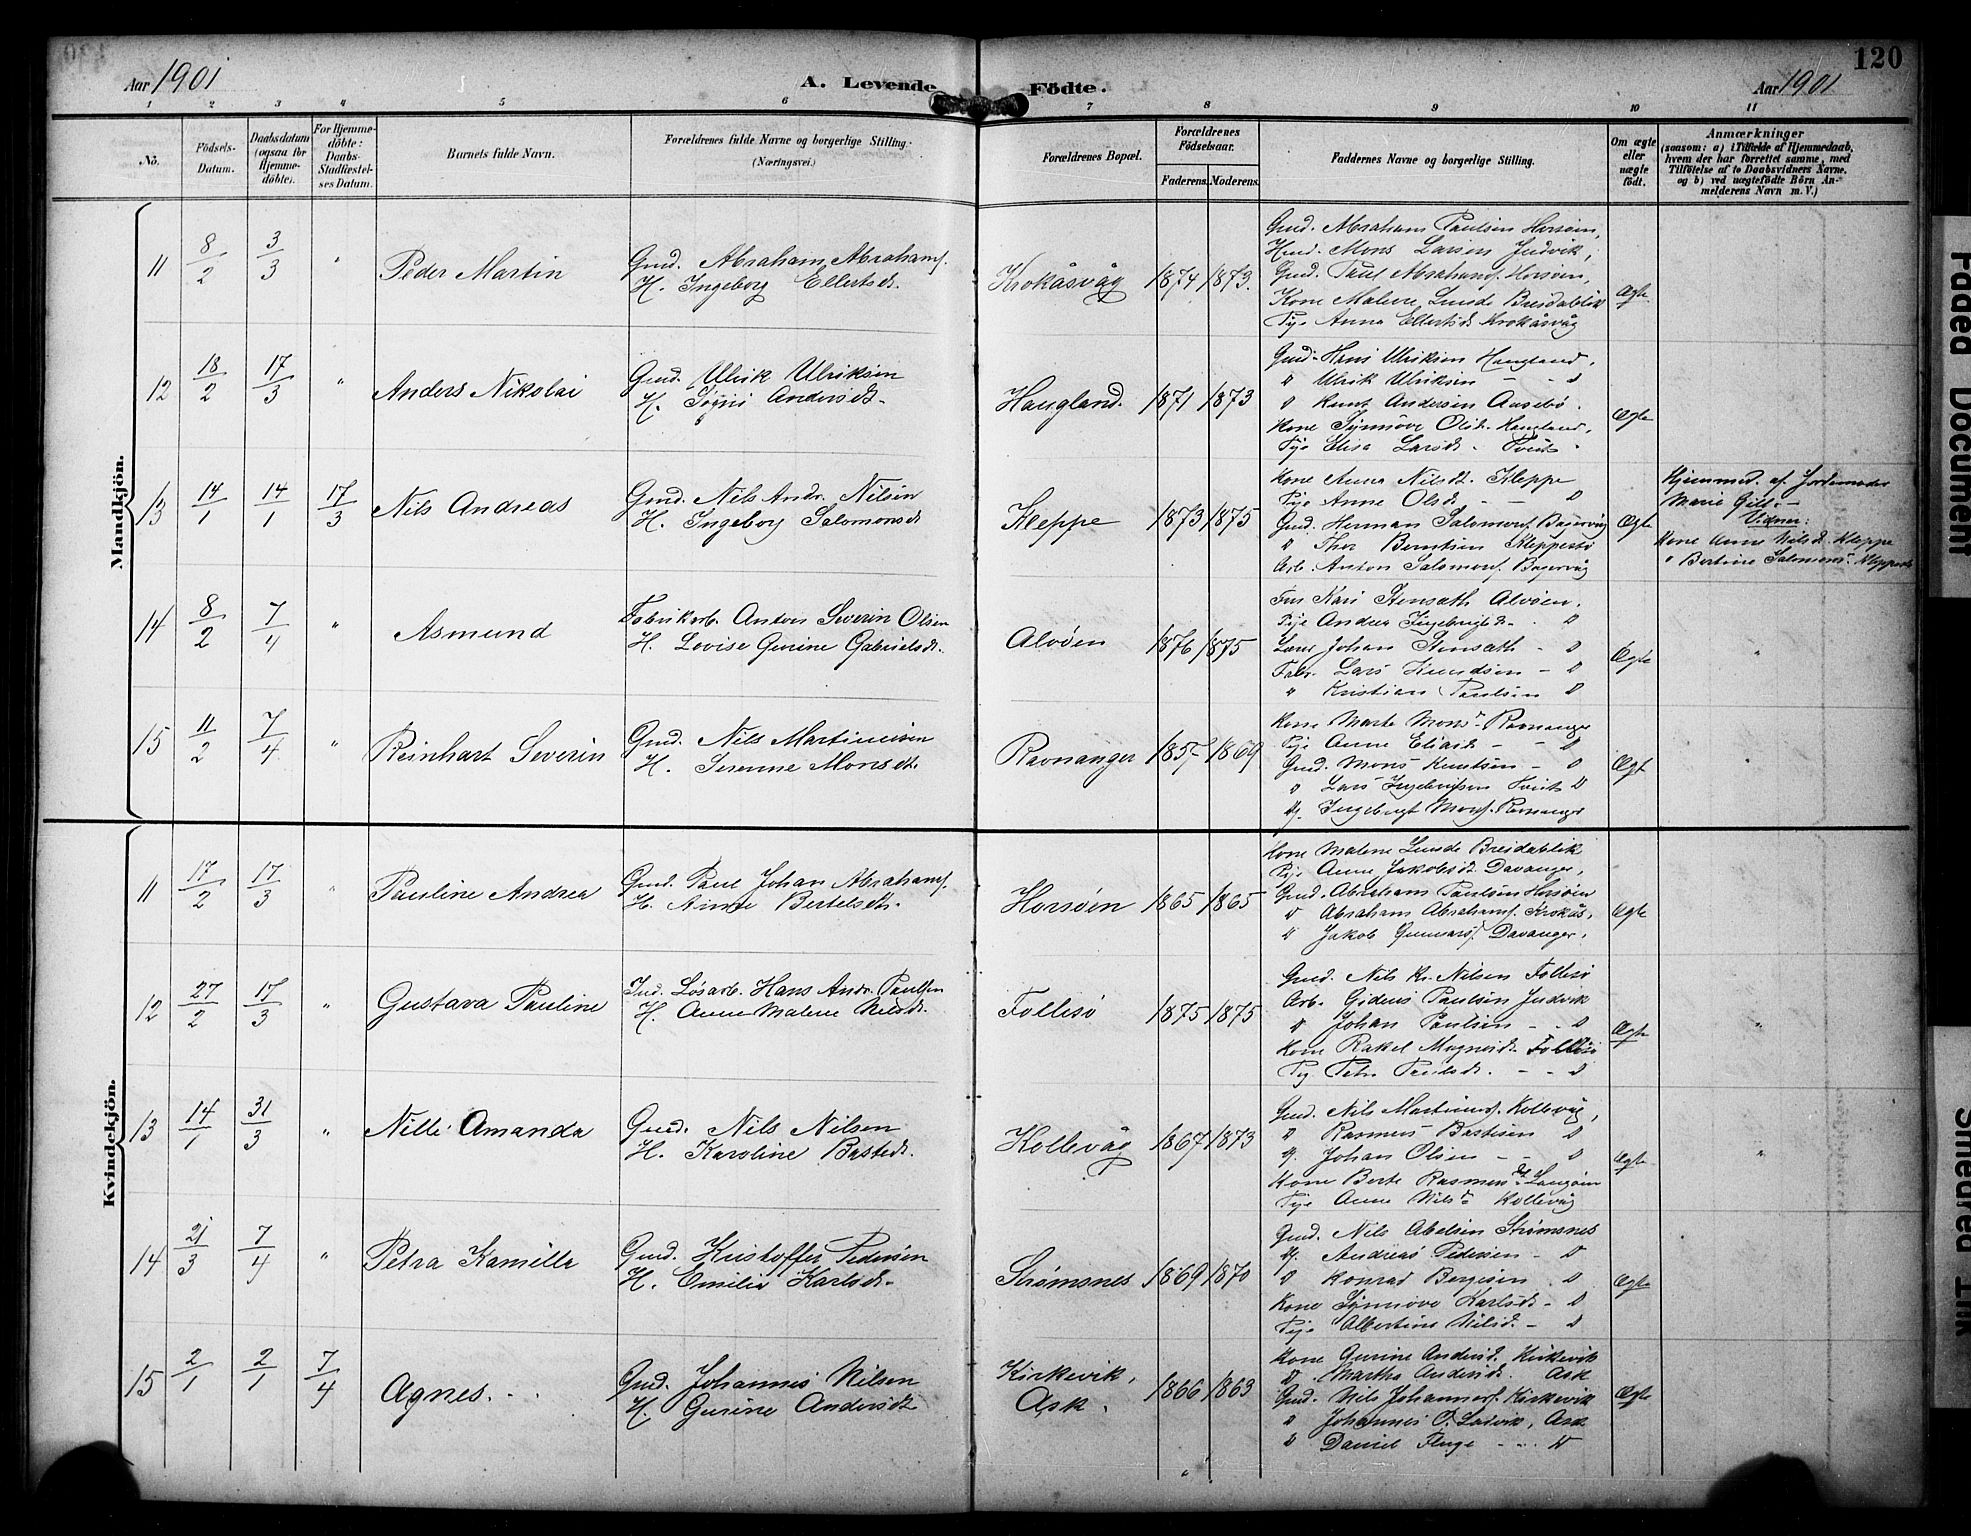 120
Aar 1901 A. Levende Födte. Aar 1901
1 2 3 4 5 6 7 8 9 10 11
No.
Födsels-Datum.
Daabsdatum (ogsaa for Hjemme-döbte).
For Hjemme-döbte: Daabs-Stadfæstel-ses Datum.
Barnets fulde Navn.
Forældrenes fulde Navne og borgerlige Stilling.
(Næringsvei.)
Forældrenes Bopæl.
Forældrenes Födselsaar.
Faderens. Moderens.
Faddernes Navne og borgerlige Stilling.
Om ægte eller uægte födt.
Anmærkninger
(saasom: a) i Tilfælde af Hjemmedaab,
hvem der har forrettet samme, med
Tilföielse af to Daabsvidners Navne,
og b) ved uægtefödte Börn An-
melderens Navn m. V.)
Mandkjön.
11 8/2 3/3 " Peder Martin
Gmd. Abraham Abrahams.
H. Ingeborg Ellertsdt.
Krokåsvåg 1874 1873.
Gmd. Abraham Paulsen Horsøen,
Hmd. Mons Larsen Judvik,
Gmd. Paul Abrahams. Horsøen,
Kone Malene Lunde Breidablik
Pige Anna Ellertsdt Krokåsvåg
Ægte
12 18/2 17/3 " Anders Nikolai
Gmd. Ulrik Ulriksen
H. Signi Andersdt.
Haugland. 1871 1873
Gmd. Hans Ulriksen Haugland,
" Ulrik Ulriksen - - D
" Knut Andersen Aasebø.
Kone Synnøve Olsdt. Haugland,
Pige Elisa Larsdt. Tveit.
Ægte
13 14/1 14/1 17/3 Nils Andreas
Gmd. Nils Andr. Nilsen
H. Ingeborg Salomonsdt
Kleppe 1873 1875
Kone Anna Nilsdt. Kleppe
Pige Anne Olsdt. - - D
Gmd. Herman Salomons.
" Thor Berntsen Kleppestø
Arb. Anton Salomons.
Ægte
Hjemmed. af Jordemoder
Marie
Vidner:
Kone Anne Nilsdt. Kleppe
" Bertine Salomons. Kleppestø
14 8/2 7/4 " Asmund
Fabrikarb. Anton Severin Olsen
H. Lovise Gurine Gabrielsdt.
Alvøen 1876 1875
Fru Kari Stensath Alvøen.
Pige Andrea Ingebrigtsdt. D
Lærer Johan Stensath - D
Fabr. Lars Knudsen - D
" Kristian Paulsen D
Ægte "
15 11/2 7/4 " Reinhart Severin
Gmd. Nils Martinusen
H. Serenne Monsdt.
Ravnanger 1857 1869
Kone Marte Monsdt. Ravnanger
Pige Anne Eliasdt - - D
Gmd. Mons Knutsen - D
" Lars Ingebrigtsen Tveit D
Uf. Ingebrigt Mons. Ravnanger
Ægt "
Kvindekjön.
11 17/2 17/3 " Pauline Andrea
Gmd. Paul Johan Abrahams.
H. Anne Bertelsdt.
Horsøen 1865 1865
Kone Malene Lunde Breidablik
Pige Anne Jakobsdt Davanger,
Gmd. Abraham Paulsen Horsøen
" Abraham Abrahams. Krokås,
" Jakob Gunnars. Davanger,
Ægte
12 27/2 17/3 " Gustava Pauline
Ind. Løsarb. Hans Andr. Paulsen
H. Anne Malene Nilsdt.
Follesø 1875 1875
Gmd. Nils Kr. Nilsen Follesø
Arb. Paulsen Judvik
" Johan Paulsen - - D
Kone Rakel Magnesdt. Follesø
Pig. Petra - - D
Ægte "
13 14/1 31/3 " Nilli Amanda
Gmd. Nils Nilsen
H. Karoline Bastedt.
Kollevåg 1867 1873
Gmd. Nils Martinus. Kollevåg,
" Rasmus Bastisen D
Uf. Johan Olsen - - D
Kone Berte Rasmusdt
Pige Anne Nilsdt Kollevåg
Ægte "
14 21/3 7/4 " Petra Kamilla
Gmd. Kristoffer Pedersen
H. Emilie Karlsdt.
Strømsnes 1869 1870
Gmd. Nils Abelsen Strømsnes
Uf. Andreas Pedersen - D
" Konrad Bergesen . D
Kone Synnøve Karlsdt - D
Pige Albertine Nilsdt. - D
Ægte
15 2/1 2/1 7/4 Agnes.
Gmd. Johannes Nilsen
H. Gurine Andersdt
Kirkevik,
Ask. 1866 1863
Kone Gurine Andersdt. Kirkevik
D Martha Andersdt. Ask
Gmd. Nils Johannes. Kirkevik
" Johannes O. Ask
" Daniel - - D
Ægte
Faded Document
Smeared Ink